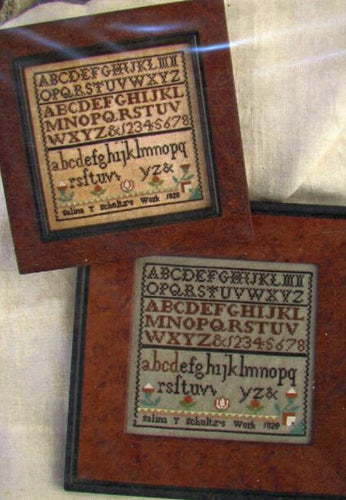 ABCDEFGHIJKLM
OPQRSTUVWXYZ
ABCDEFGHIJKL
MNOPQRSTUV
WXYZ&12345678
abcdefghijklmnopq
rsſtuvv yz&
Salina Y Schultz's Work 1828
ABCDEFGHIJKLM
OPQRSTUVWXYZ
ABCDEFGHIJKL
MNOPQRSTUV
WXYZ&12345678
abcdefghijklmnopq
rsſtuvv yz&
Salina Y Schultz's Work 1828